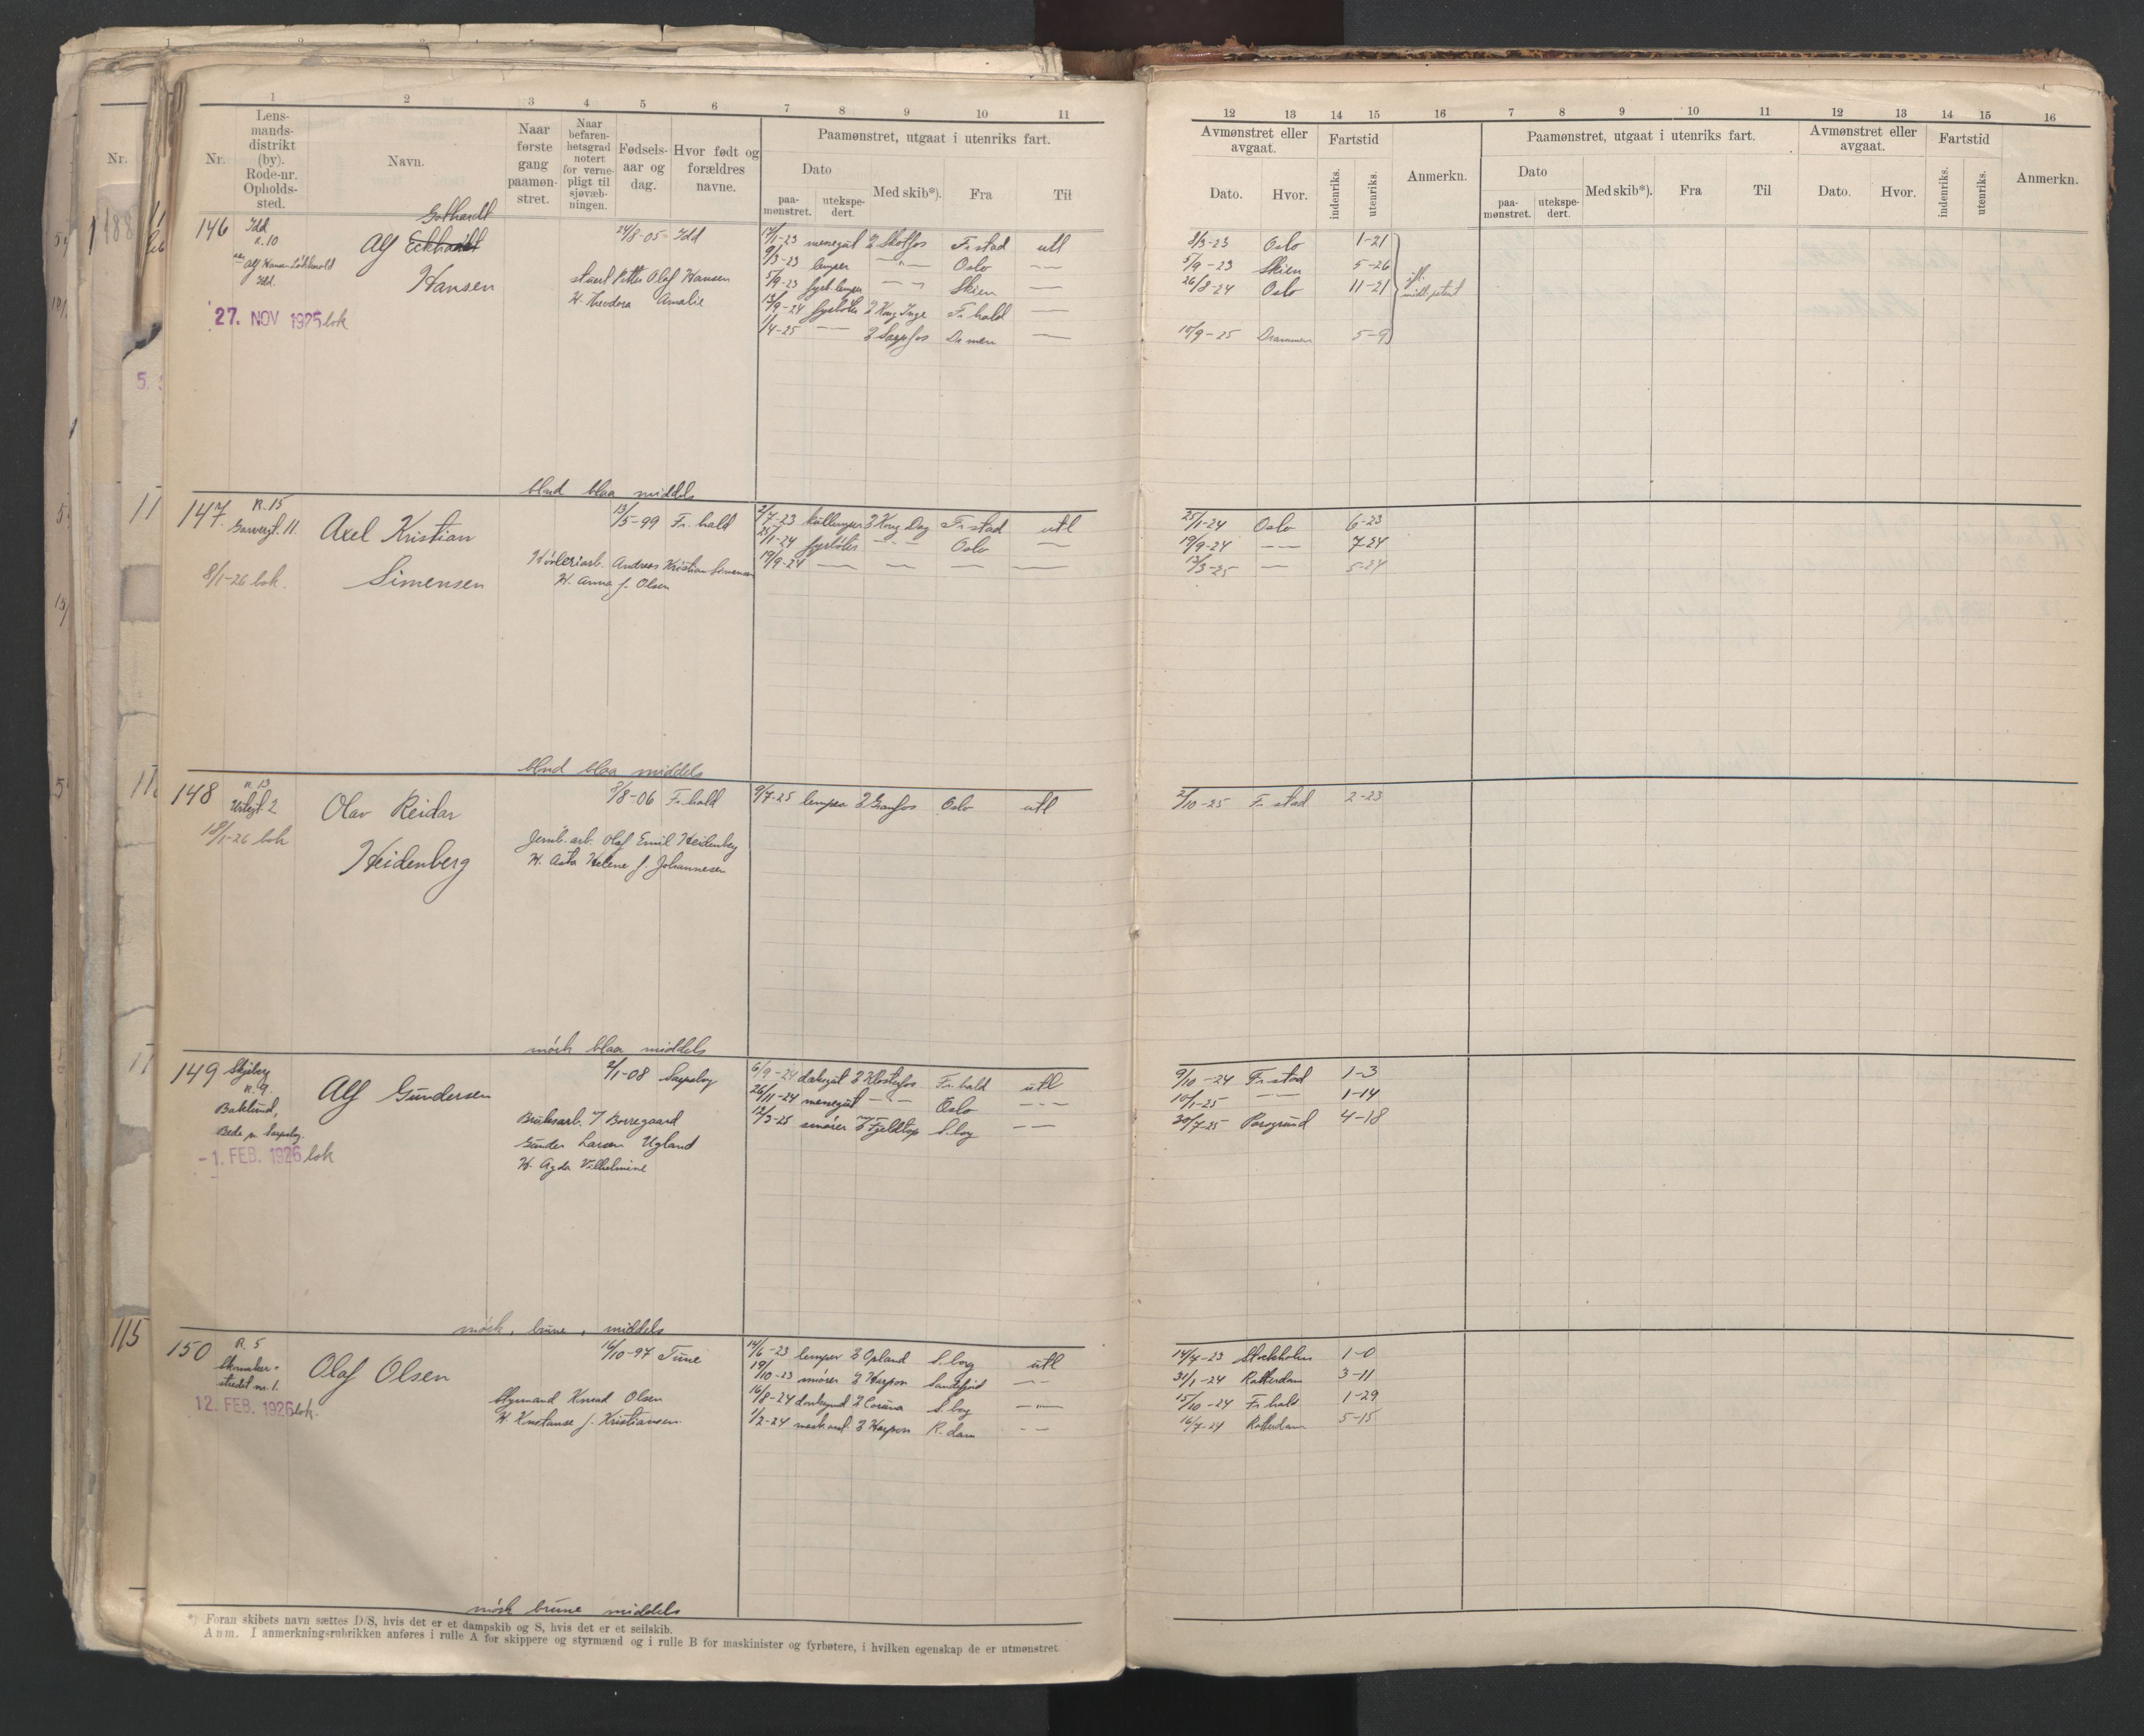 1 2 3 4 5 6 7 8 9 10 11
Nr.
Lens-
mands-
distrikt
(by).
Rode-nr.
Opholds-
sted.
Navn.
Naar
første
gang
paamøn-
stret.
Naar
befaren-
hetsgrad
notert
for verne-
pligt til
sjøvæb-
ningen.
Fødsels-
aar og
dag.
Hvor født og
forældres
navne.
Paamønstret, utgaat i utenriks fart.
Dato
paa-
mønstret.
utekspe-
dert.
Med skib*).
Fra
Til
146 Idd
R. 10
Alf Hansen
Idd.
27. NOV 1925 bok
Gothardt
Alf Eckhardt
Hansen
24/8-05 Idd
Petter Olaf Hansen
H. Theodora Amalie
17/1-23 messegut Skotfos Fr.stad utl
9/3-23 lemper — " — Oslo —
5/9-23 fyrb.lemper — Skien —
13/9-24 fyrbøter Kong Inge Fr.hald —
1/4-25 — Sarpfos Dr.men —
blond blaa middels
147 R. 15
Garvergt. 11.
8/1-26 bok.
Axel Kristian
Simensen
13/5-99 Fr.hald
Andreas Kristian Simensen
H. Anna f. Olsen
2/7-23 kullemper Kong Dag Fr.stad utl
25/1-24 fyrbøter — " — Oslo —
19/9-24 — — — —
blond blaa middels
148 R. 13
18/1-26 bok
Olav Reidar
Heidenberg
3/8-06 Fr.hald
Jernb.arb. Olaf Emil Heidenberg
H. Asta Helene f. Johannesen
9/7-25 lemper Granfos Oslo utl
mørk blaa middels
149 Skjeberg
R. 9.
Baklund,
Bede pr. Sarpsborg.
-1. FEB. 1926 bok
Alf Gundersen
2/1-08 Sarpsborg
Bruksarb. v/ Borregaard
Gunder Larsen Ugland
H. Agda Vilhelmine
6/9-24 dæksgut Klosterfos Fr.hald utl
26/11-24 messegut — " — Oslo — " —
12/3-25 smører Fjeldtop S.borg — —
mørk, brune, middels
150 R. 5
Skomaker-
strædet nr. 1.
12. FEB. 1926 bok.
Olaf Olsen
16/10-97 Tune
Styrmand Konrad Olsen
H. Konstanse f. Kristiansen
14/6-23 lemper Opland S.borg utl
19/10-23 smører Harpon Sandefjord — —
16/8-24 donkeymd Corona S.borg — " —
1/2-24 Harpon R.dam — —
mørk brune middels
*) Foran skibets navn sættes D/S, hvis det er et dampskib og S, hvis det er et seilskib.
Anm. I anmerkningsrubrikken anføres i rulle A for skippere og styrmænd og i rulle B for maskinister og fyrbøtere, i hvilken egenskap de er utmønstret.
12 13 14 15 16 7 8 9 10 11 12 13 14 15 16
Avmønstret eller
avgaat.
Dato.
Hvor.
Fartstid
indenriks.
utenriks.
Anmerkn.
Paamønstret, utgaat i utenriks fart.
Dato
paa-
mønstret.
utekspe-
dert.
Med skib*).
Fra
Til
Avmønstret eller
avgaat.
Dato.
Hvor.
Fartstid
indenriks.
utenriks.
Anmerkn.
8/3-23 Oslo 1-21
5/9-23 Skien 5-26
26/8-24 Oslo 11-21
10/9-25 Drammen 5-9
25/1-24 Oslo 6-23
19/9-24 — — 7-24
13/3-25 — 5-24
2/10-25 Fr.stad 2-23
9/10-24 Fr.stad 1-3
10/1-25 — — 1-14
30/7-25 Porsgrund 4-18
14/7-23 Stockholm 1-0
31/1-24 Rotterdam 3-11
15/10-24 Fr.hald 1-29
16/7-24 Rotterdam 5-15
Nr.
188
115